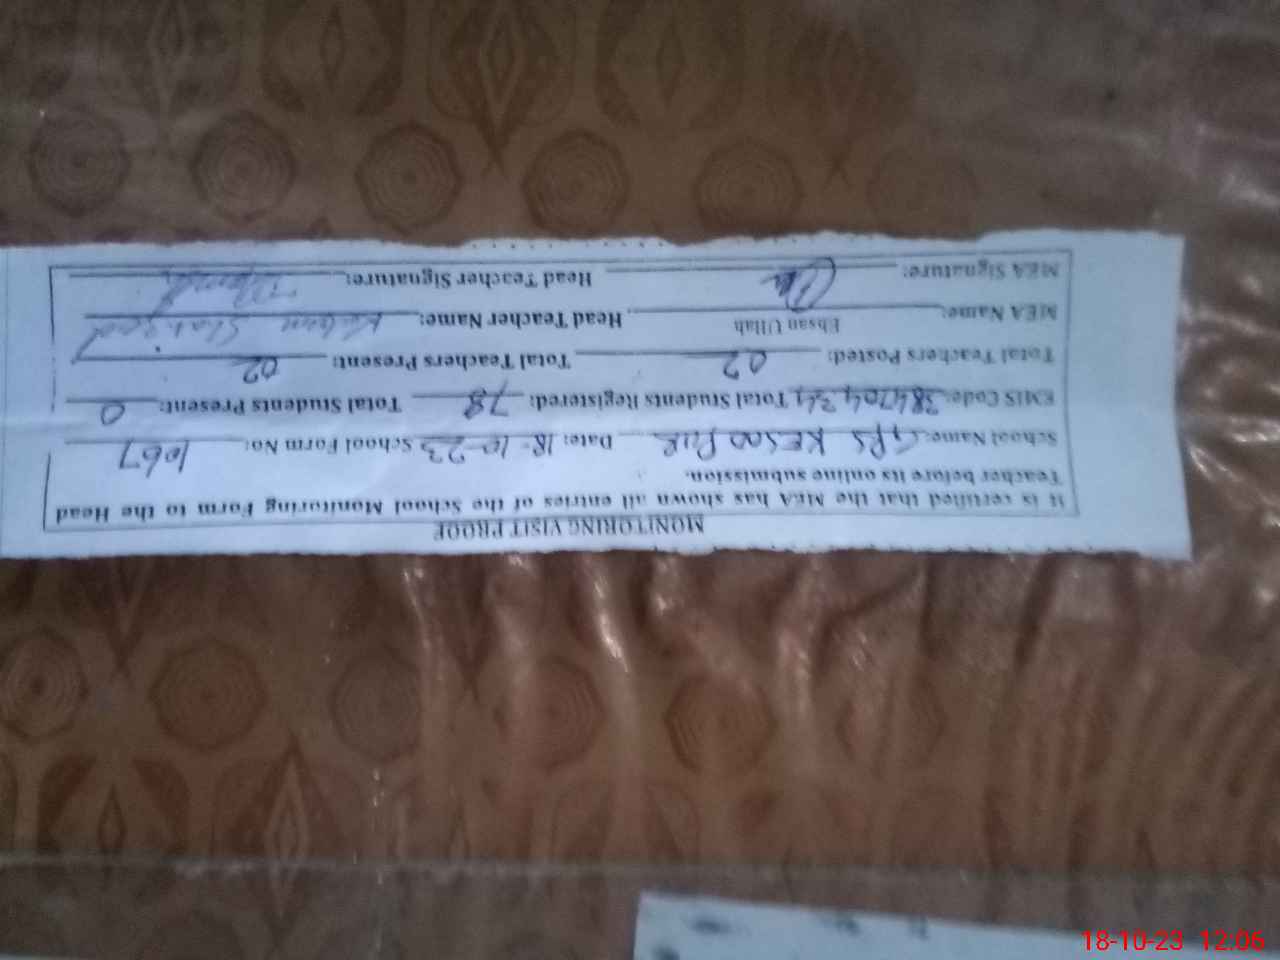 MONITORING VISIT PROOF
It is certified that the MEA has shown all entries of the School Monitoring Form to the Head
Teacher before its online submission.
School Name: GPS KESOO PUR Date: 18-10-23 School Form No: 1067
EMIS Code: Total Students Registered: 78 Total Students Present: 0
Total Teachers Posted: 02 Total Teachers Present: 02
MEA Name: Ehsan Ullah Head Teacher Name:
MEA Signature: Head Teacher Signature:
18-10-23 12:06